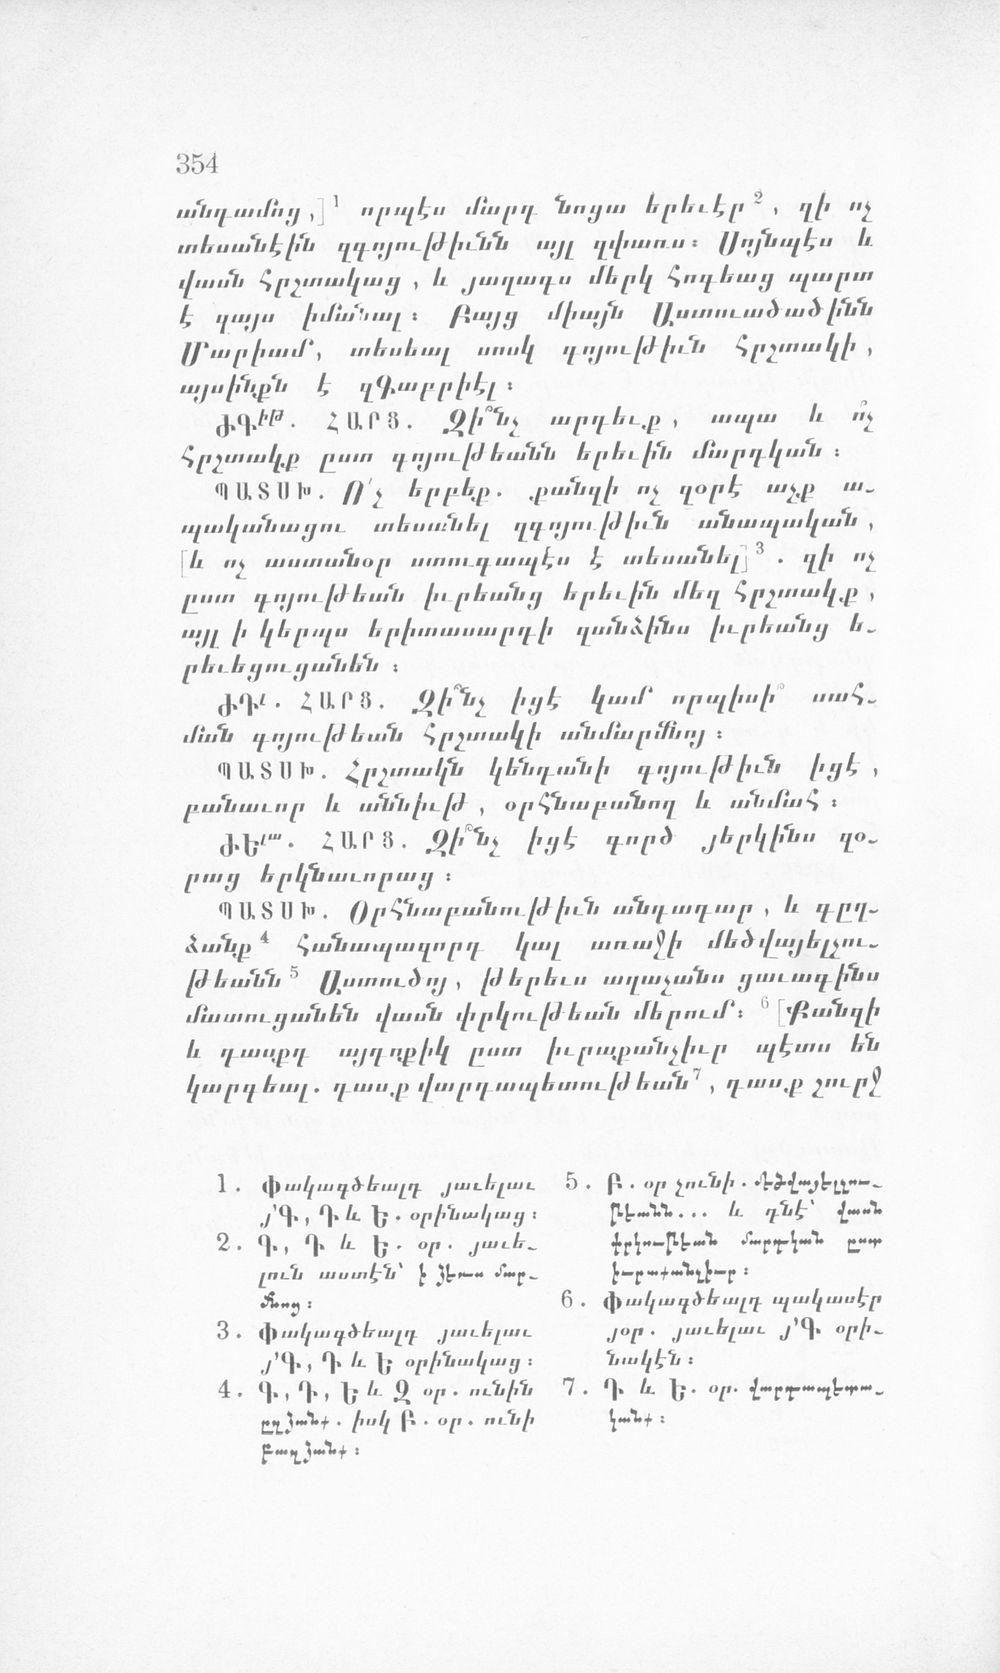 354
անդամոց,]¹ որպէս մարդ նոցա երեւէր², զի ոչ
տեսանէին զգոյութիւնն այլ զփառս։ Սոյնպէս և
վասն Հրշտակաց, և յաղագս մերկ Հոգեաց պարտ
է զայս իմանալ։ Բայց միայն Աստուածածինն
Մարիամ, տեսեալ սոսկ գոյութիւն Հրշտակի,
այսինքն է զԳաբրիէլ։
ԺԳիթ. ՀԱՐՑ. Զի՞նչ արդեւք, ապա և ո՞չ
Հրշտակք ըստ գոյութեանն երեւին մարդկան։
ՊԱՏՍԽ. Ո՛չ երբեք. քանզի ոչ զօրէ աչք ա-
պականացու տեսանել զգոյութիւն անապական,
[և ոչ աստանօր ստուգապէս է տեսանել]³. զի ոչ
ըստ գոյութեան իւրեանց երեւին մեզ Հրշտակք,
այլ ի կերպս երիտասարդի զանձինս իւրեանց ե-
րեւեցուցանեն։
ԺԴլ. ՀԱՐՑ. Զի՞նչ իցէ կամ որպիսի՞ սահ-
ման գոյութեան Հրշտակի անմարմնոյ։
ՊԱՏՍԽ. Հրշտակն կենդանի գոյութիւն իցէ,
բանաւոր և աննիւթ, օրհնաբանող և անմահ։
ԺԵլա. ՀԱՐՑ. Զի՞նչ իցէ գործ յերկինս զօ-
րաց երկնաւորաց։
ՊԱՏՍԽ. Օրհնաբանութիւն անդադար, և գըղ-
ձանք⁴ հանապազորդ կալ առաջի մեծվայելչու-
թեանն⁵ Աստուծոյ, թերեւս աղաչանս ցաւագինս
մատուցանեն վասն փրկութեան մերում։ ⁶[Քանզի
և դասքդ այդոքիկ ըստ իւրաքանչիւր պէտս են
կարգեալ. դասք վարդապետութեան⁷, դասք շուրջ
1. Փակագծեալդ յաւելաւ
յ՚Գ, Դ և Ե. օրինակաց։
2. Գ, Դ և Ե. օր. յաւե-
լուն աստէն՝ ի յետս մար-
մնոց։
3. Փակագծեալդ յաւելաւ
յ՚Գ, Դ և Ե օրինակաց։
4. Գ, Դ, Ե և Զ օր. ունին
ըղձանք. իսկ Բ. օր. ունի
բաղձանք։
5. Բ. օր չունի. մեծվայելչու-
թեանն... և դնէ՝ վասն
փրկութեան մարդկան ըստ
իւրաքանչիւր։
6. Փակագծեալդ պակասէր
յօր. յաւելաւ յ՚Գ օրի-
նակէն։
7. Դ և Ե. օր. վարդապետա-
կանք։